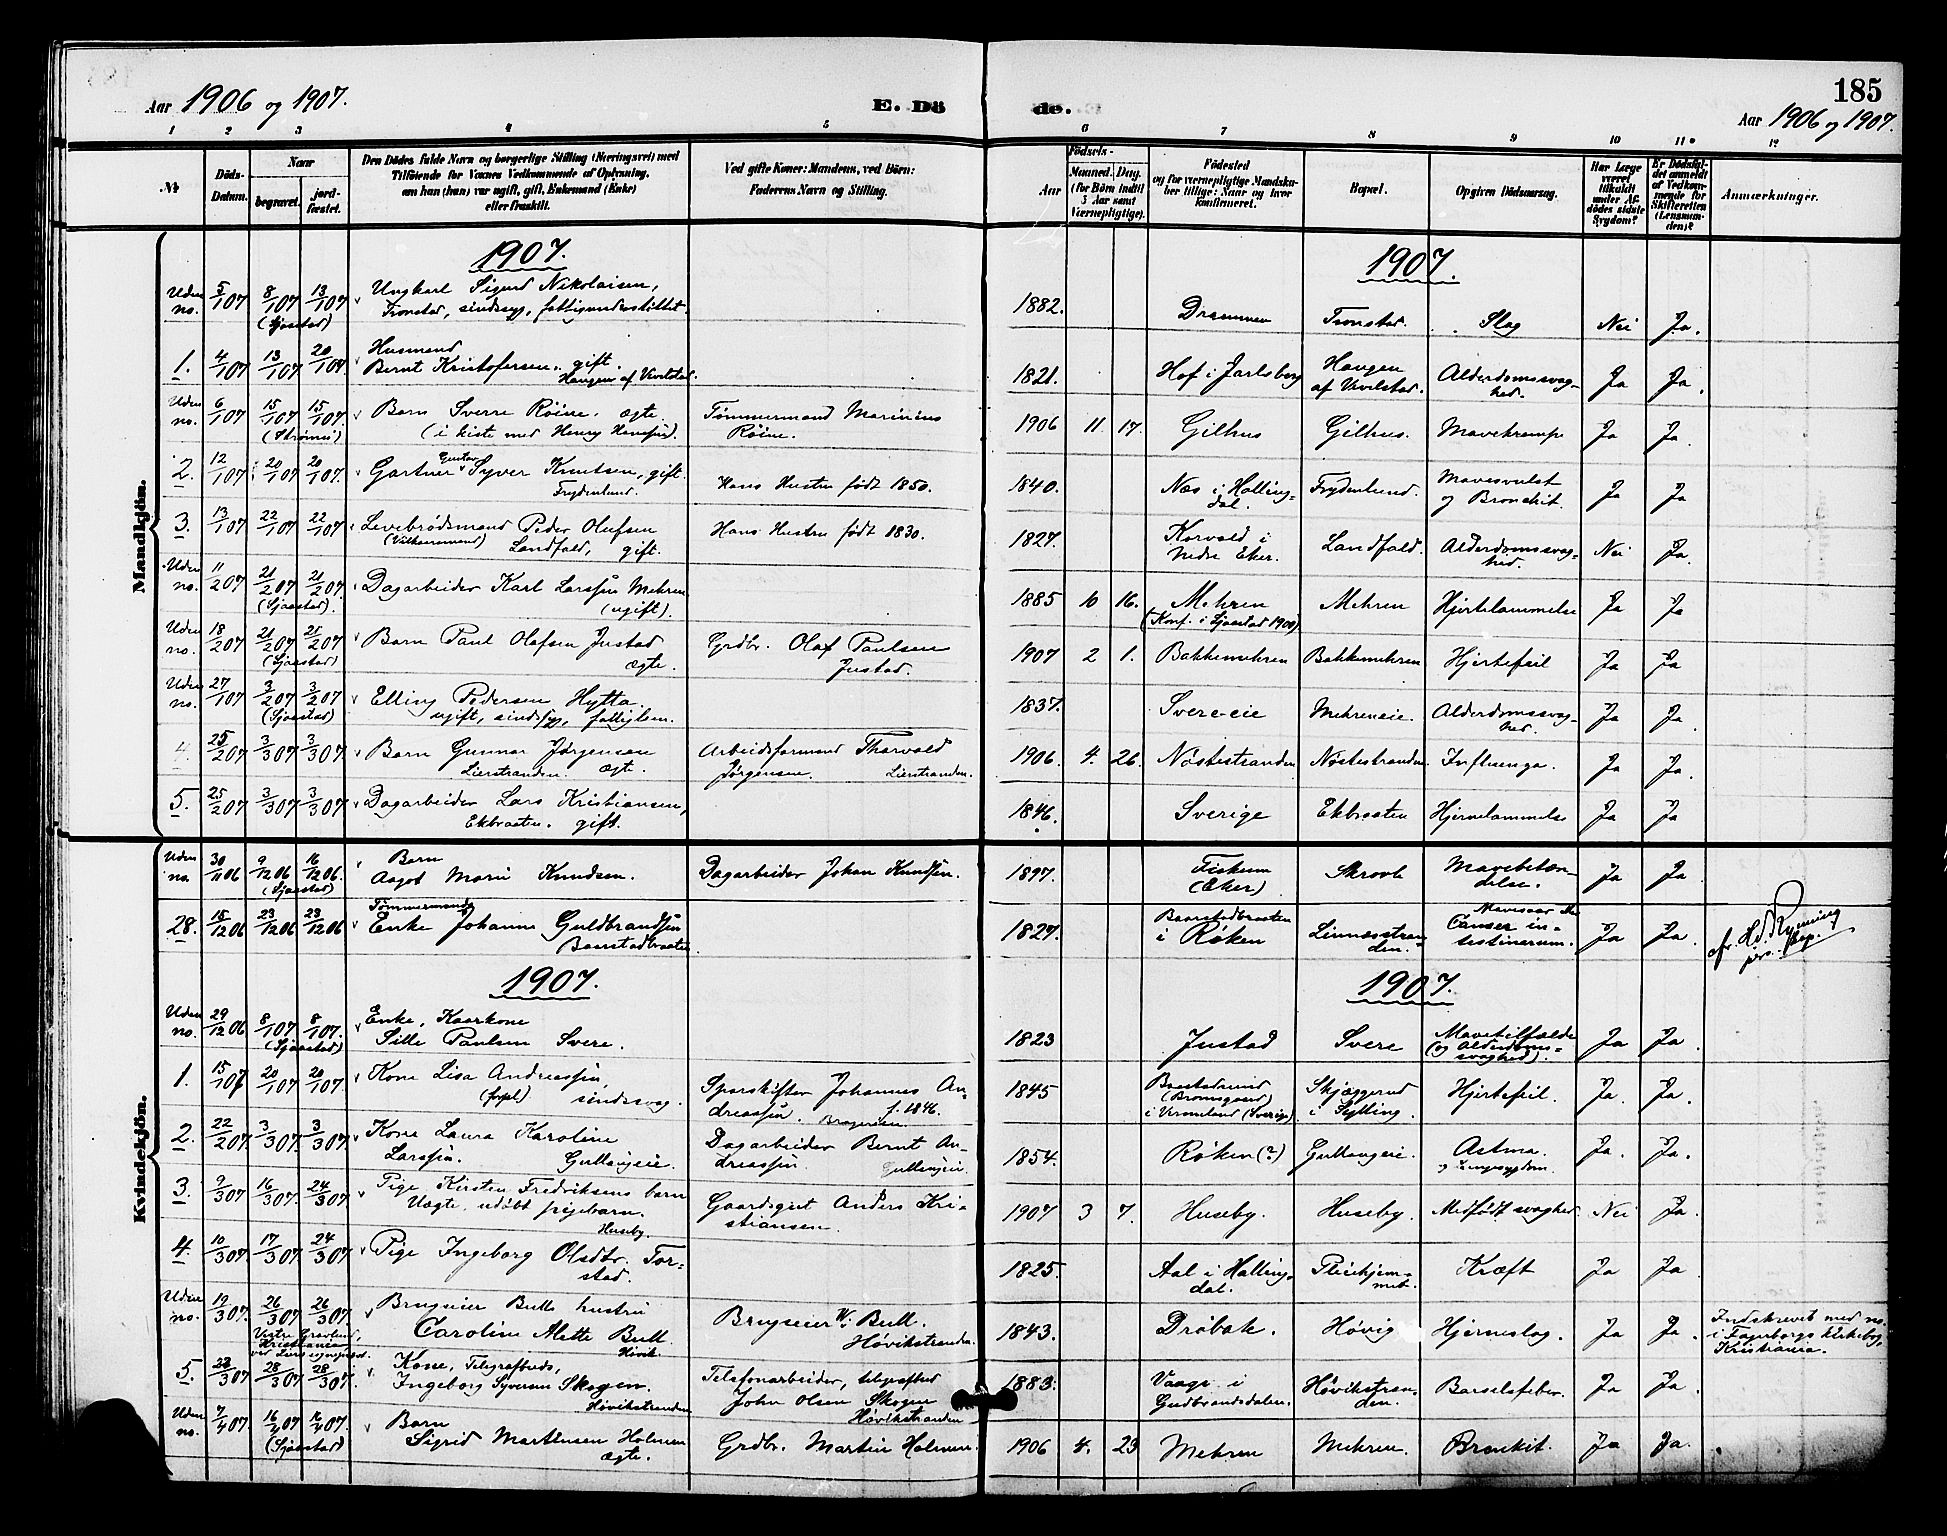 Aar 1906 og 1907.
E. Dö
de.
185
Aar 1906 og 1907.
1 2 3 4 5 6 7 8 9 10 11 12
№
Döds-Datum.
Naar
begravet.
jordfæstet.
Den Dödes fulde Navn og borgerlige Stilling (Næringsvei) med
Tilföiende for Voxnes Vedkommende af Oplysning,
om han (hun) var ugift, gift, Enkemand (Enke)
eller fraskilt.
Ved gifte Koner: Mandens, ved Börn:
Faderens Navn og Stilling.
Födsels-
Aar
Maaned. Dag.
(for Börn indtil
3 Aar samt
Værnepligtige).
Födested
og for værnepligtige Mandska-
ber tillige: Naar og hvor
konfirmeret.
Bopæl.
Opgiven Dödsaarsag.
Har Læge
været
tilkaldt
under Af-
dödes sidste
Sygdom?
Er Dödsfal-
det anmeldt
af Vedkom-
mende for
Skifteretten
(Lensman-
den)?
Anmærkninger.
Mandkjön.
1907.
1907.
Uden no. 5/107 8/107 (Sjaastad) 13/107 Ungkarl Sigurd Nikolaisen, Tronstad, sindssyg, fattigunderstöttet. 1882. Drammen Tronstad. Slag Nei Ja.
1. 4/107 13/107 20/107 Husmand Bernt Kristofersen. gift. Haugen af Vivelstad. 1821. Hof i Jarlsberg Haugen af Vivelstad. Alderdomssvaghed. Ja Ja.
Uden no. 6/107 15/107 (Strömsö) 15/107. Barn Sverre Röine. ægte. (i kiste med Henry Hansen). Tømmermand Marinius Röine. 1906 11. 17. Gilhus Gilhus. Mavekrampe Ja Ja.
2. 12/107 20/107 20/107. Gartner Gustav Syver Knutsen, gift. Frydenlund. Hans Hustru født 1850. 1840. Næs i Hallingdal. Frydenlund. Mavesvulst og Bronchit. Ja Ja
3. 13/107 22/107 22/107 Levebrødsmand (Vilkaarsmand) Peder Olufsen Landfald, gift. Hans Hustru født 1830. 1827. Korvald i Nedre Eker. Landfald. Alderdomssvaghed. Nei Ja.
Uden no. 11/207 21/207 (Sjaastad) 21/207. Dagarbeider Karl Larssen Mehren (ugift). 1885 10 16. Mehren (Konf. i Sjaastad 1900) Mehren Hjertelammelse Ja Ja
Uden no. 18/207 21/207 (Sjaastad) 21/207 Barn Paul Olafsen Justad ægte. Grdbr. Olaf Paulsen Justad. 1907 2 1. Bakkemehren Bakkemehren Hjertefeil Ja Ja
Uden no. 27/107 3/207 (Sjaastad) 3/207 Elling Pedersen Hytta. ugift, sindssyg, fattiglem. 1837. Svere-eie Mehreneie. Alderdomssvaghed. Ja Ja.
4. 25/207 3/307 3/307. Barn Gunnar Jørgensen Lierstranden. ægte. Arbeidsformand Thorvald Jørgensen. Lierstranden. 1906. 4. 26. Nöstestranden Nöstestranden Influenza. Ja Ja.
5. 25/207 3/307 3/307. Dagarbeider Lars Kristiansen, Ekbraaten. gift. 1846. Sverige Ekbraaten Hjernelammelse Ja Ja
Kvindekjön.
Uden no. 30/1106 9/1206 (Sjaastad) 16/1206. Barn Aagot Marie Knudsen. Dagarbeider Johan Knudsen. 1897. Fiskum (Eker) Skrovle Mavebetændelse. Ja Ja
28. 15/1206 23/1206 23/1206 Tømmermands Enke Johanne Guldbrandsen Baarstadbraaten. 1827. Baarstadbraaten i Røken Linnæsstranden. Cancer intestinarum. Ja Ja.
1907.
1907.
Uden no. 29/1206 8/107 (Sjaastad) 8/107. Enke, Kaarkone Sille Paulsen Svere. 1823 Justad Svere Mavetilfælde (og Alderdomssvaghed). Ja Ja.
1. 15/107 20/107 20/107. Kone Lisa Andreassen, (forpl.) sindssvag. Sporskifter Johannes Andreassen. f. 1846. Bragernæs 1845 (Sverige) Skjæggerud i Sylling. Hjertefeil. Ja. Ja.
2. 22/207 3/307. 3/307 Kone Laura Karoline Larssen. Gullaugeie. Dagarbeider Bernt Andreassen. Gullaugeie. 1854. Røken (?) Gullaugeie. Astma. og Lungesygdom. Ja. Ja.
3. 9/307 16/307. 24/307 Pige Kirsten Fredriksens barn Uægte, udöbt pigebarn. Huseby. Gaardsgut Anders Kristiansen. 1907 3 7. Huseby. Huseby. Medfödt svaghed. Nei Ja.
4. 10/307. 17/307. 24/307 Pige Ingeborg Olsdtr. Torstad. 1825. Aal i Hallingdal. Pleiehjemmet. Kræft Ja Ja.
Uden no. 19/307. 26/307 Vestre Gravlund, Kristiania 26/307. Brugseier Bulls hustru Caroline Alette Bull. Høvik. Brugseier W. Bull. Høvikstranden 1843. Dröbak. Høvig Hjerneslag. Ja Ja. Indskrevet med no. i Fagerborgs kirkebog, Kristiania.
5. 23/307 28/307 28/307. Kone, Telegrafbuds, Ingeborg Syversen Skogen. Høvikstranden Telefonarbeider, telegrafbud John Olsen Skogen Høvikstranden 1883. Vaage i Gudbrandsdalen. Høvikstranden. Barselfeber. Ja Ja.
Uden no. 7/407 16/407 (Sjaastad) 16/407. Barn Sigrid Marthinsen Holmen ægte. Grdbr. Martin Holmen. 1906 4. 23 Mehren Mehren. Bronkit. Ja Ja.